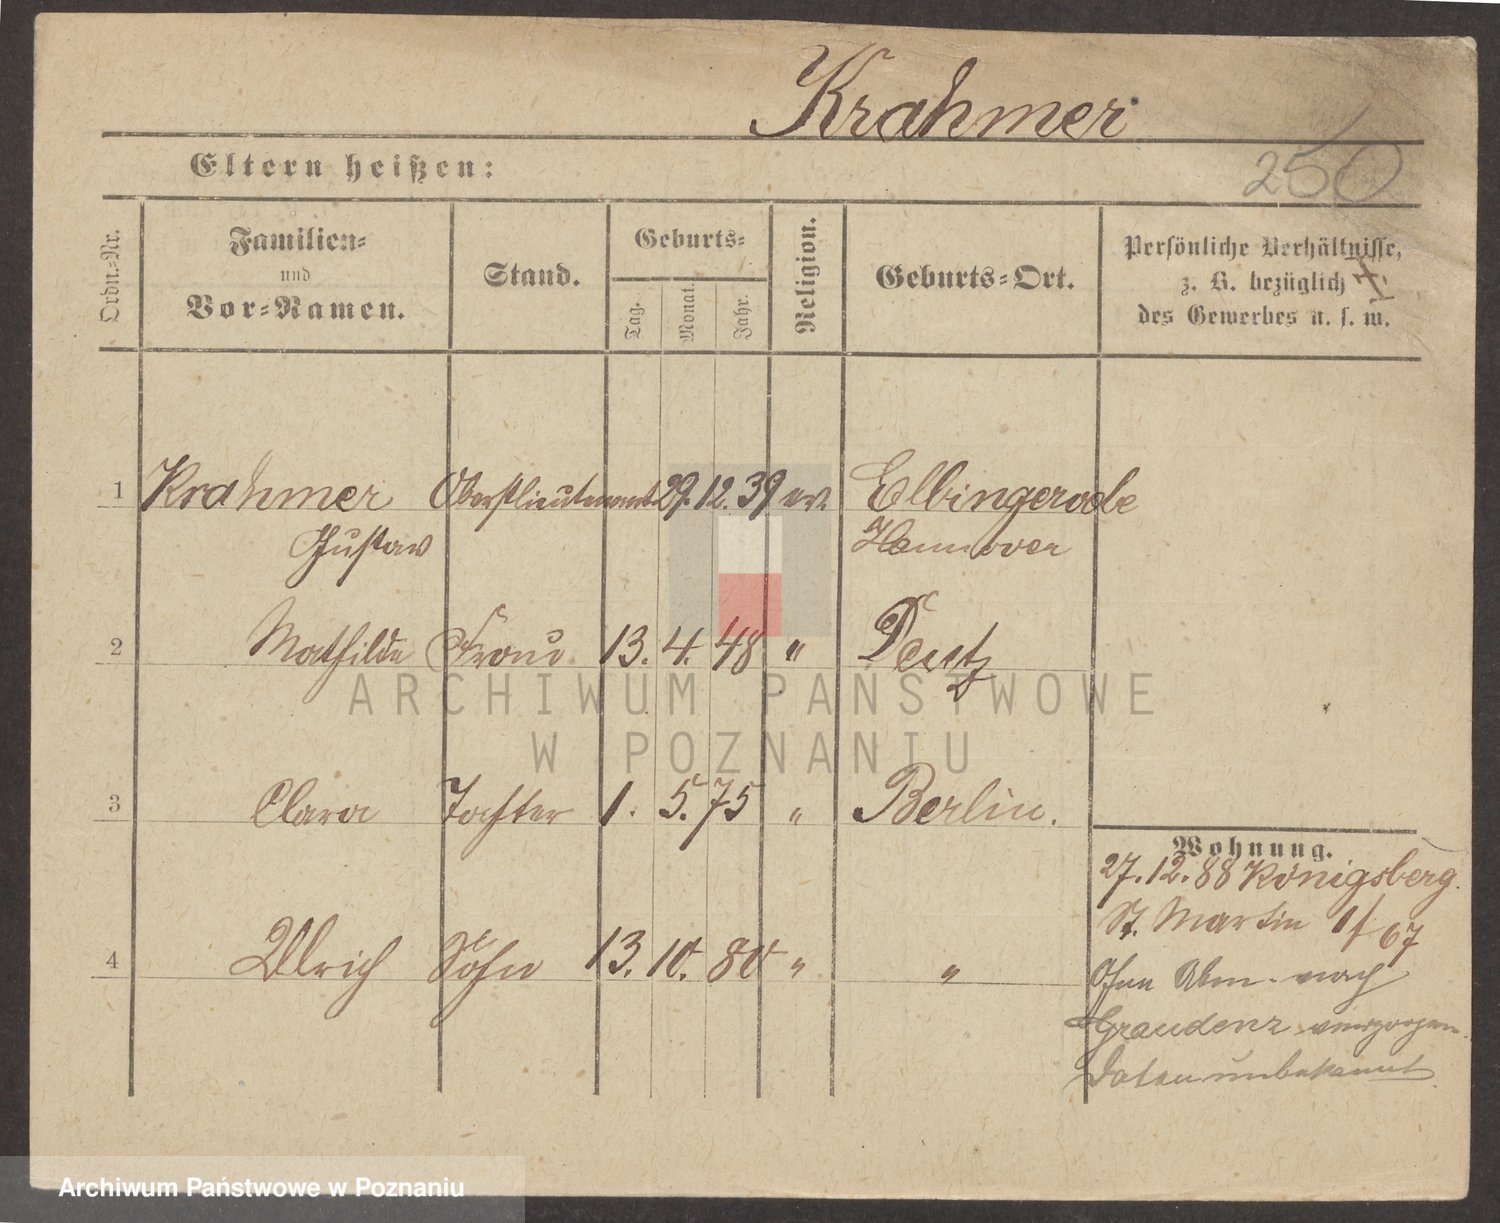 Krahmer
250
Eltern heißen:
Ordn.-Nr.
Familien-
und
Vor-Namen.
Stand.
Geburts-
Tag.
Monat.
Jahr.
Religion.
Geburts-Ort.
Persönliche Verhältnisse,
z. B. bezüglich
des Gewerbes u. s. w.
1 Krahmer Oberstlieutenant 29. 12. 39 ev. Elbingerode
Gustav Hannover
2 Mathilde Frau 13. 4. 48 " Deutz
ARCHIWUM PAŃSTWOWE
W POZNANIU
3 Clara Tochter 1. 5. 75 " Berlin.
Wohnung.
27. 12. 88 Königsberg.
St. Martin 1/67
4 Ulrich Sohn 13. 10. 80 " "
Ohne Abm. nach
Graudenz verzogen
Datum unbekannt
Archiwum Państwowe w Poznaniu